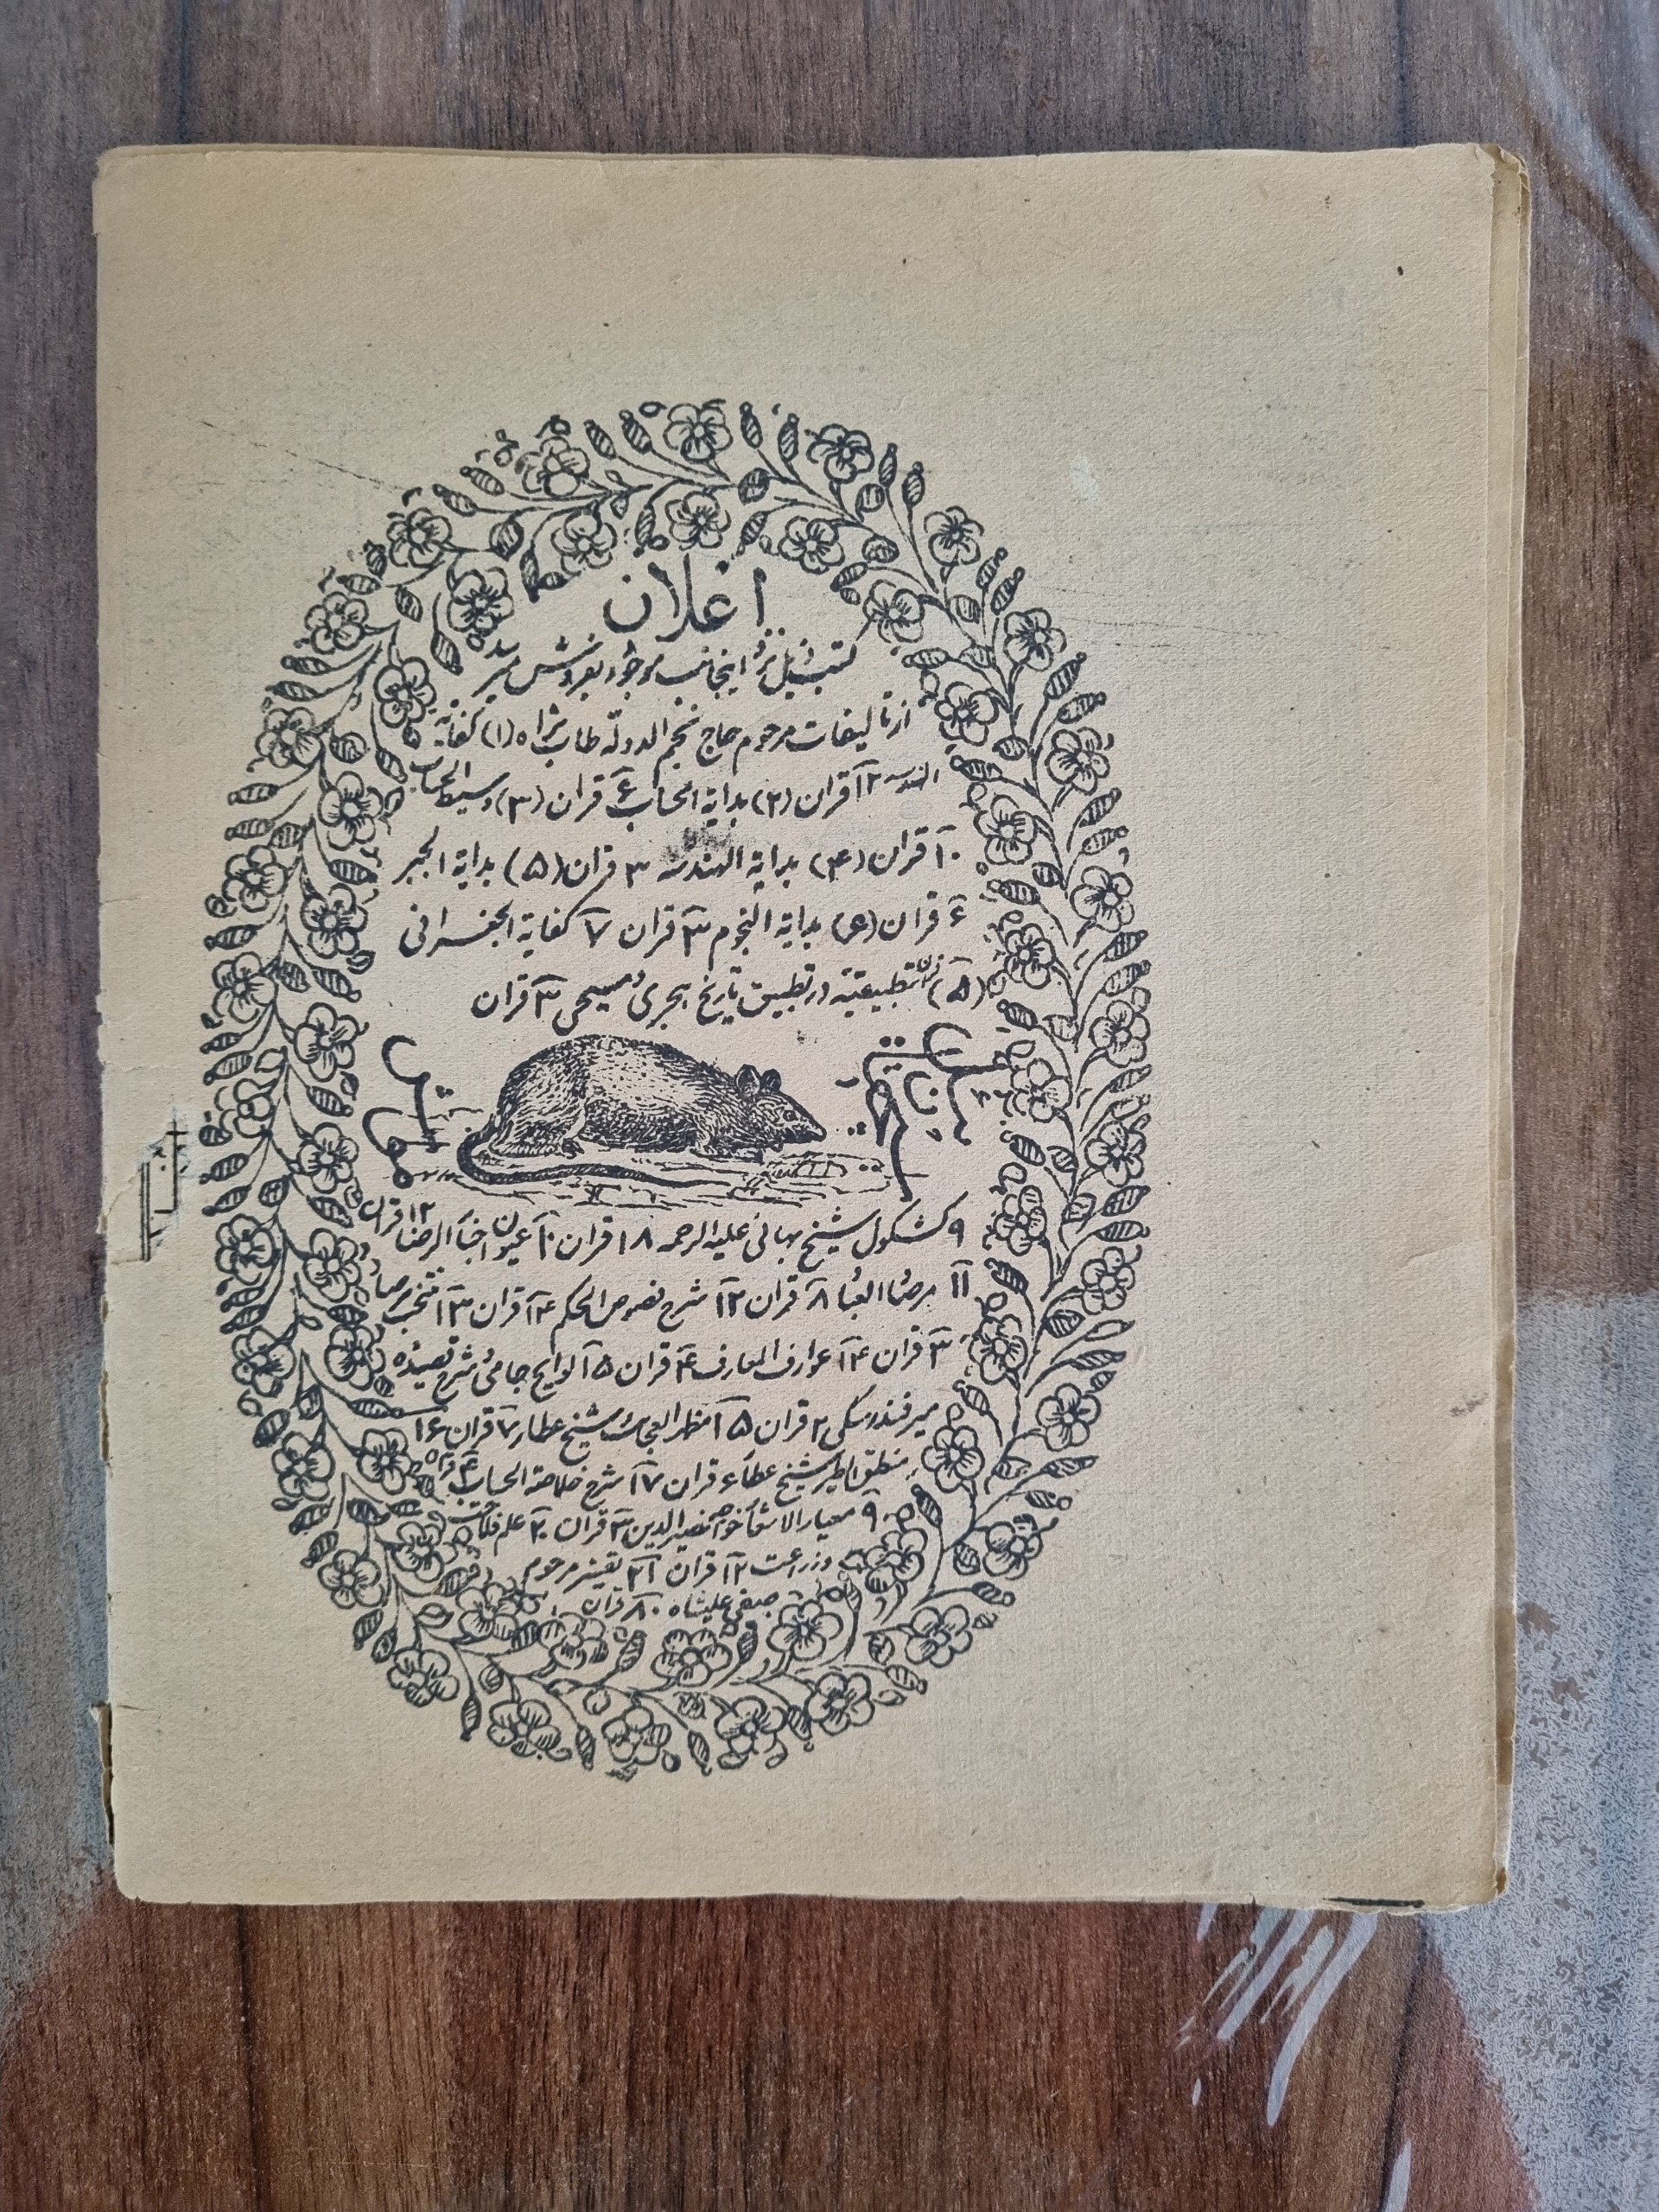 اعلان
کتب ذیل نزد اینجانب موجود بفروش میرسد
از تالیفات مرحوم حاج نجم الدوله طاب ثراه (۱) کفایة
الهندسه ۱۲ قران (۲) بدایة الحساب ۶ قران (۳) وسیط الحساب
۱۰ قران (۴) بدایة الهندسه ۳ قران (۵) بدایة الجبر
۶ قران (۶) بدایة النجوم ۳ قران ۷ کفایة الجغرافی
(۸) تطبیقیه در تطبیق تاریخ هجری و مسیحی ۳ قران
۹ کشکول شیخ بهائی علیه الرحمه ۱۸ قران ۱۰ عیون اخبار الرضا ۱۲ قران
۱۱ مرصاد العباد ۸ قران ۱۲ شرح فصوص الحکم ۱۴ قران ۱۳ منتخب مرصاد
۳ قران ۱۴ عوارف المعارف ۴ قران ۱۵ لوایح جامی و شرح قصیده
میرفندرسکی ۲ قران ۱۵ مظهر العجائب شیخ عطار ۷ قران ۱۶
منطق الطیر شیخ عطار ۶ قران ۱۷ شرح خلاصة الحساب ۴ قران
۹ معیار الاشعار خواجه نصیر الدین ۳ قران ۲۰ علم فلاحت
و زراعت ۱۲ قران ۲۱ تفسیر مرحوم
صفی علیشاه ۸۰ قران